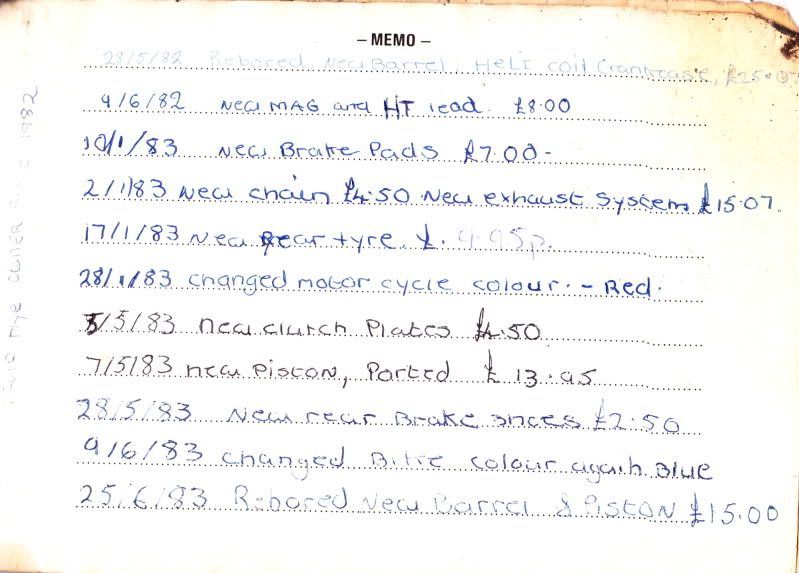 – MEMO –
28/5/82 Rebored, New Barrel, Heli coil Crankcase, £25.0
4/6/82 New MAG and HT lead. £8.00
10/1/83 New Brake Pads £7.00-
2/1/83 New chain £4.50 New exhaust System £15.07.
17/1/83 New Rear tyre. £. 9.95p.
28/1/83 changed motor cycle colour. - Red.
5/5/83 New clutch Plates £4.50
7/5/83 new piston, Ported £ 13.95
28/5/83 New rear Brake shoes £2.50
9/6/83 changed Bike colour again Blue
25/6/83 Rebored New Barrel & Piston £15.00
OWNER 1982